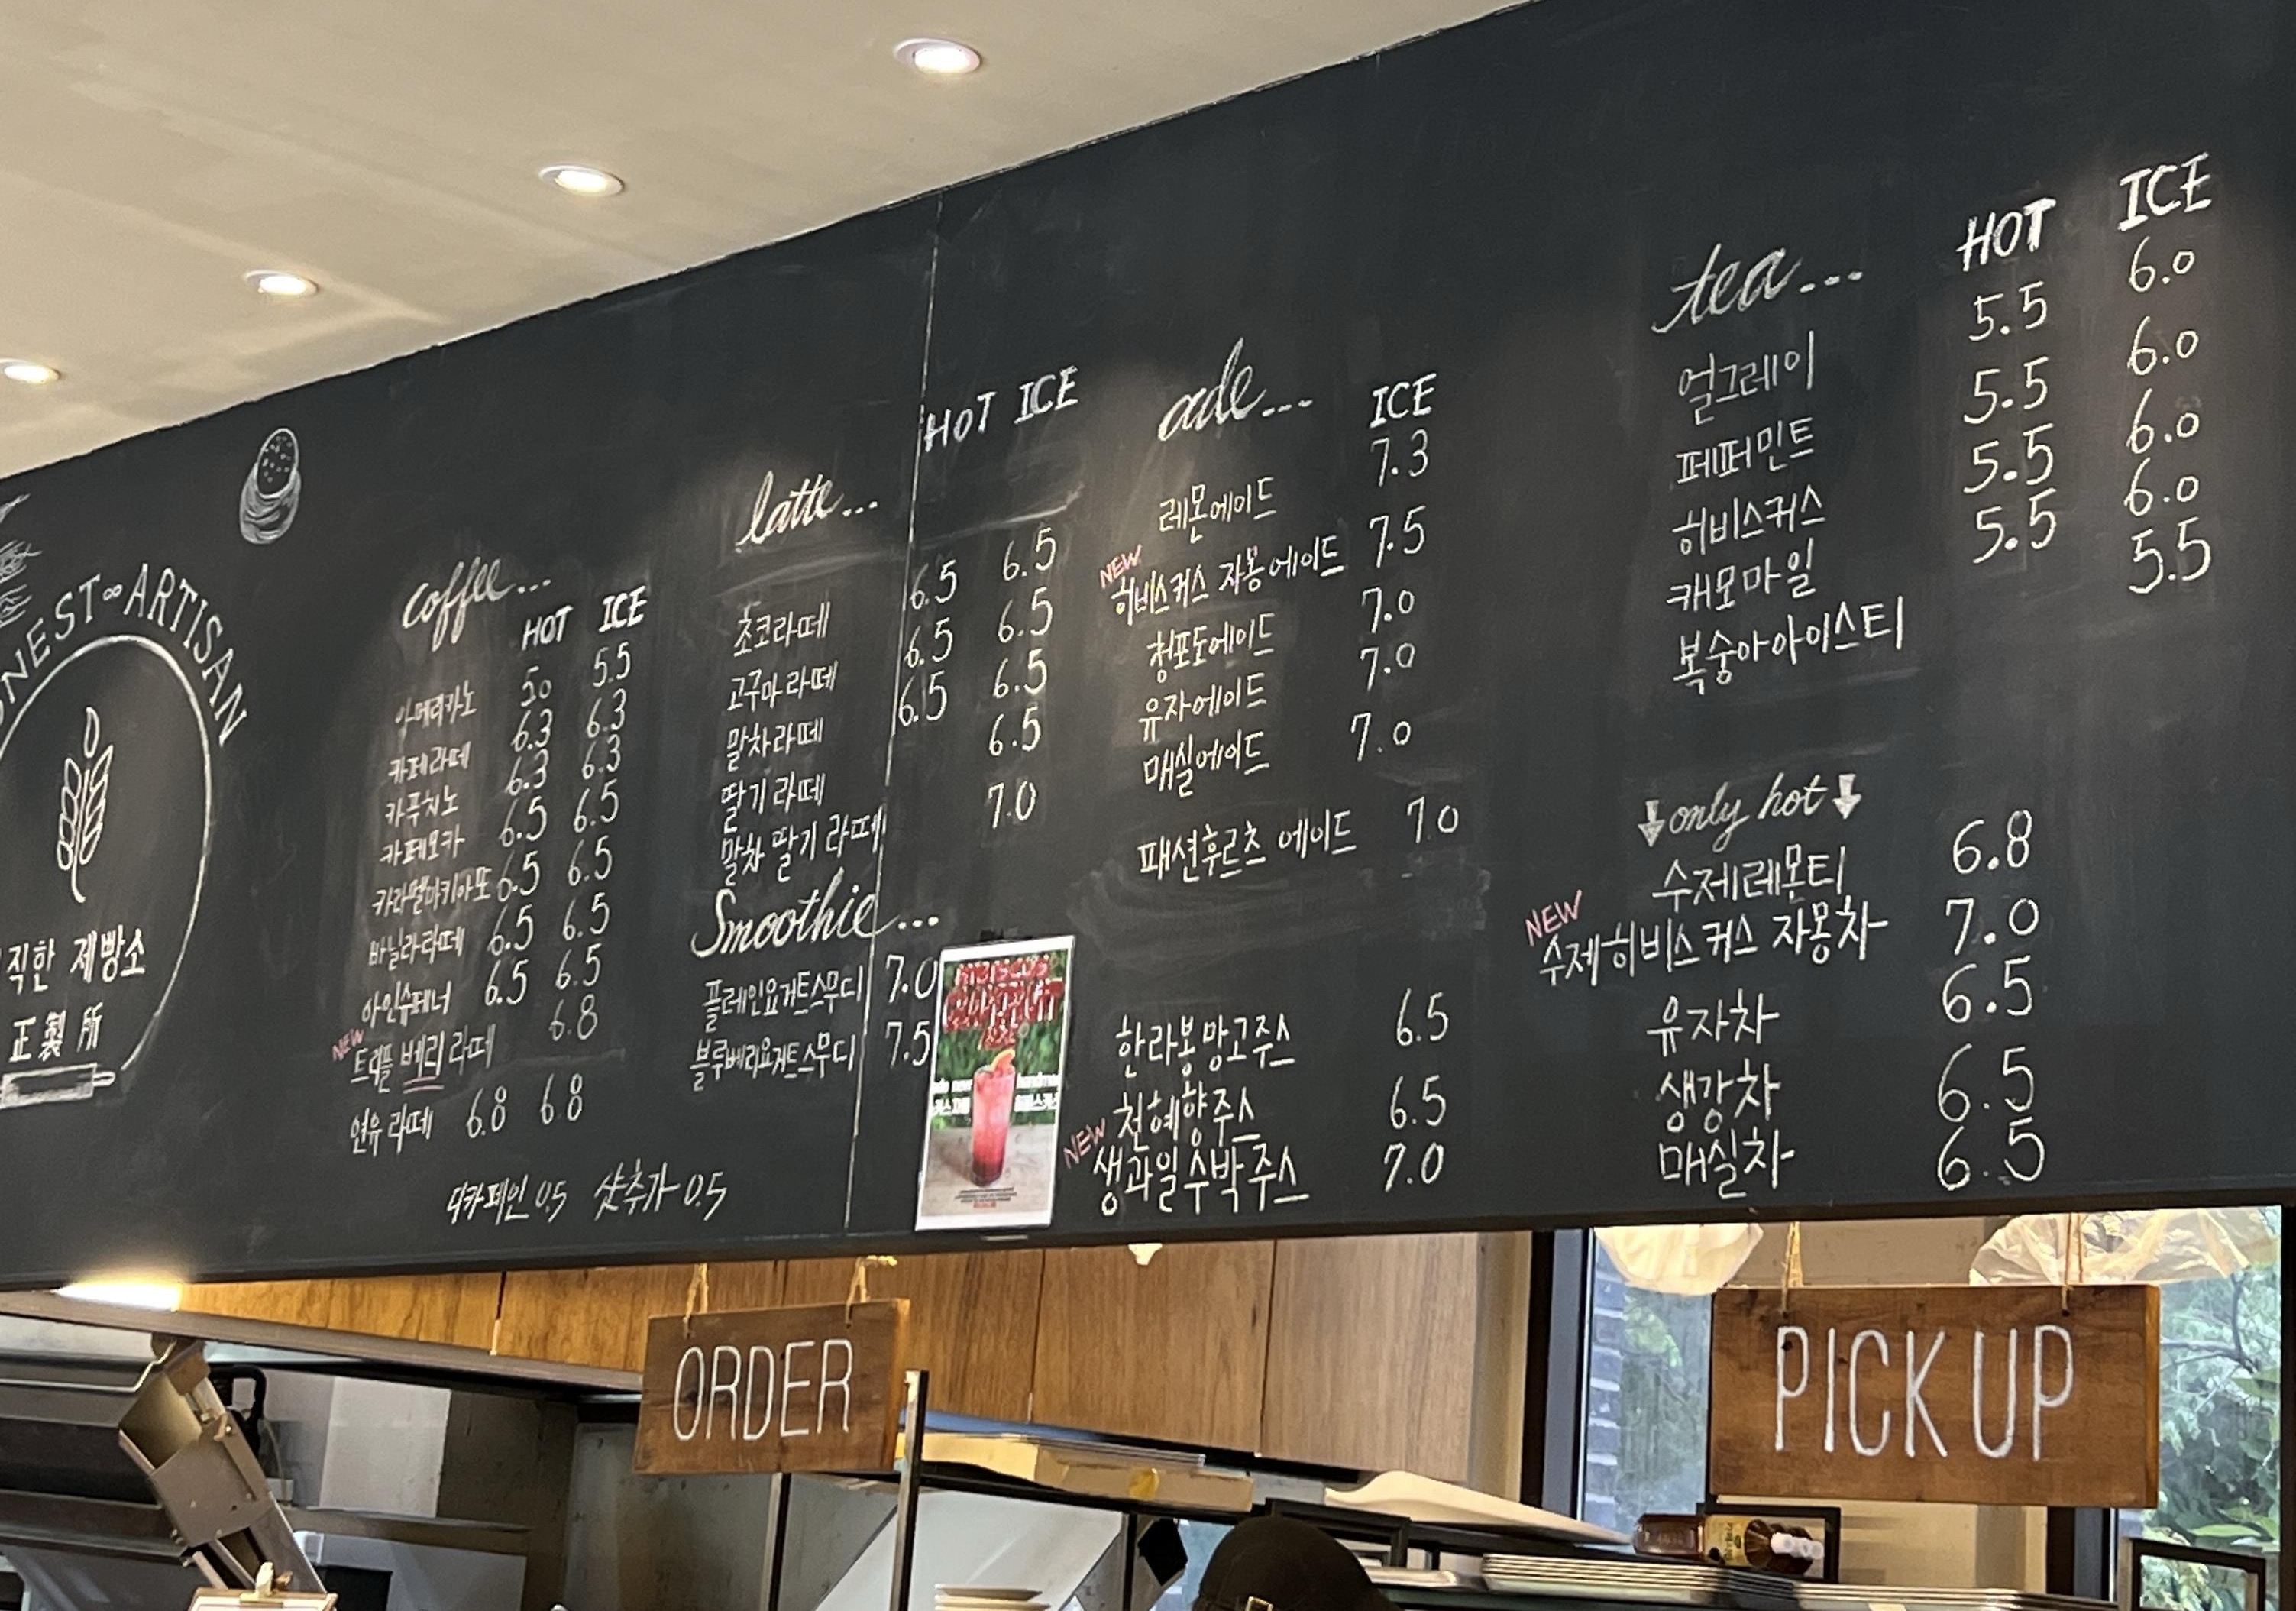 HONEST∞ARTISAN
직한 제빵소
正製所
coffee...
HOT ICE
아메리카노 5.0 5.5
카페라떼 6.3 6.3
카푸치노 6.3 6.3
카페모카 6.5 6.5
카라멜마키아또 6.5 6.5
바닐라라떼 6.5 6.5
아인슈페너 6.5 6.5
NEW
트리플 베리 라떼 6.8
연유 라떼 6.8 6.8
디카페인 0.5 샷추가 0.5
latte...
HOT ICE
초코라떼 6.5 6.5
고구마라떼 6.5 6.5
말차라떼 6.5 6.5
딸기라떼 6.5
말차 딸기 라떼 7.0
Smoothie...
플레인요거트스무디 7.0
블루베리요거트스무디 7.5
HIBISCUS
ade...
ICE
레몬에이드 7.3
NEW
히비스커스 자몽에이드 7.5
청포도에이드 7.0
유자에이드 7.0
매실에이드 7.0
패션후르츠 에이드 7.0
한라봉망고주스 6.5
천혜향주스 6.5
NEW
생과일수박주스 7.0
tea...
HOT ICE
얼그레이 5.5 6.0
페퍼민트 5.5 6.0
히비스커스 5.5 6.0
캐모마일 5.5 6.0
복숭아아이스티 5.5
only hot
수제레몬티 6.8
NEW
수제히비스커스 자몽차 7.0
유자차 6.5
생강차 6.5
매실차 6.5
ORDER
PICK UP